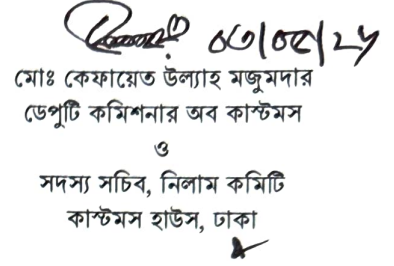 ০৩/০৫/২৫
মোঃ কেফায়েত উল্যাহ মজুমদার
ডেপুটি কমিশনার অব কাস্টমস
ও
সদস্য সচিব, নিলাম কমিটি
কাস্টমস হাউস, ঢাকা